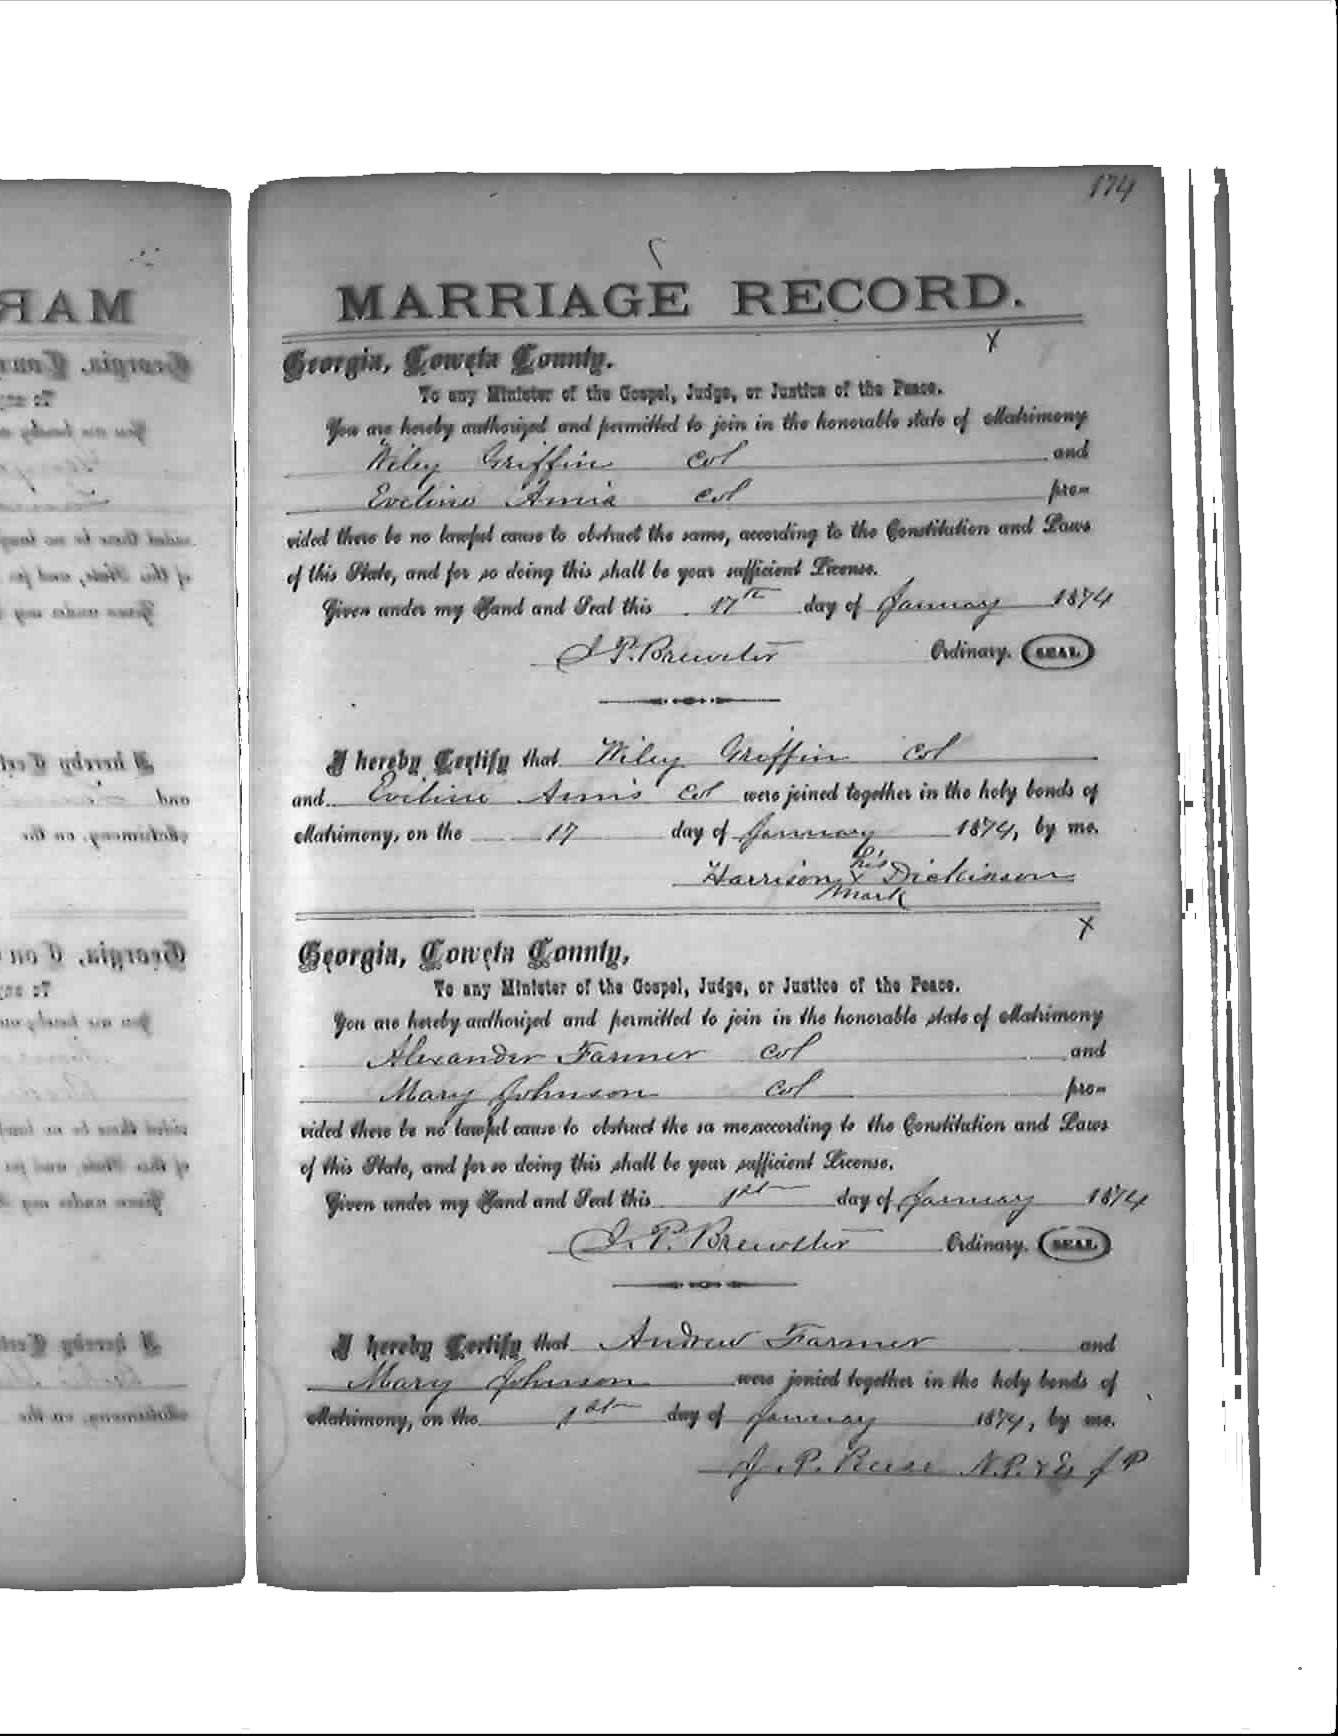 174
MARRIAGE RECORD.
X
Georgia, Coweta County.
To any Minister of the Gospel, Judge, or Justice of the Peace.
You are hereby authorized and permitted to join in the honorable state of Matrimony
Wiley Griffin col and
Eveline Amis col pro-
vided there be no lawful cause to obstruct the same, according to the Constitution and Laws
of this State, and for so doing this shall be your sufficient License.
Given under my Hand and Seal this 17th day of January 1874
J. P. Brewster Ordinary. SEAL
I hereby Certify that Wiley Griffin col
and Eviline Amis col were joined together in the holy bonds of
Matrimony, on the 17 day of January 1874, by me.
his
Harrison X Dickinson
mark
X
Georgia, Coweta County,
To any Minister of the Gospel, Judge, or Justice of the Peace.
You are hereby authorized and permitted to join in the honorable state of Matrimony
Alexander Farmer col and
Mary Johnson col pro-
vided there be no lawful cause to obstruct the sa me,according to the Constitution and Laws
of this State, and for so doing this shall be your sufficient License.
Given under my Hand and Seal this 1st day of January 1874
J. P. Brewster Ordinary. SEAL
I hereby Certify that Andrew Farmer and
Mary Johnson were jonied together in the holy bonds of
Matrimony, on the 1st day of January 1874, by me.
J. P. Reese N.P. & Ex J P